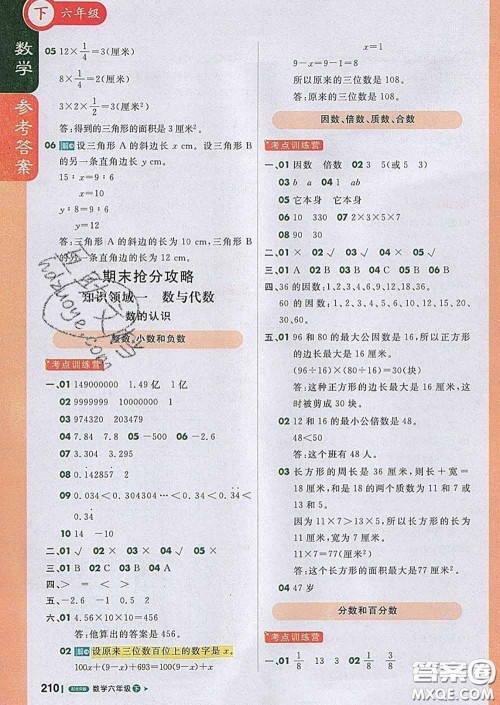 下 六年级
数学
参考答案
05 12×1/4=3(厘米)
8×1/4=2(厘米)
3×2×1/2=3(厘米²)
答:得到的三角形的面积是3厘米²。
06 解 设三角形A的斜边长x cm,设三角形B的另一条直角边长y cm。
15∶x=9∶6
x=10
y=12
答:三角形A的斜边的长为10 cm,三角形B的另一条直角边的长为12 cm。
期末抢分攻略
知识领域一 数与代数
数的认识
整数、小数和负数
考点训练营
一、01 149000000 1.49亿 1亿
02 9999999 10000000
03 974320 203479
04 7.84 7.75 05 -500 06 -2.6
08 0.142857 2
09 0.034<0.304…<0.34<0.34<
0.34
10 14 -10
二、01 √ 02 × 03 × 04 √ 05 ×
四、> = < >
五、-2.6 -1 0.5 2
六、01 4.56×10×10=456
答:他算出的答案是456。
02 解 设原来三位数百位上的数字是x。
100x+(9-x)+693=100(9-x)+x
210 数学六年级 下
x=1
9-x=9-1=8
所以原来的三位数是108。
答:原来的三位数是108。
因数、倍数、质数、合数
考点训练营
一、01 因数 倍数 02 3 5(或5 3)
03 b a 04 1 ab
05 它本身 它本身
06 10 330 07 2×3×5×7
08 90 30
二、01 × 02 × 03 × 04 √ 05 ×
四、36的因数:1,2,3,4,6,9,12,18,36。
60的因数:1,2,3,4,5,6,10,12,15,20,30,60。
五、01 96和80的最大公因数是16,所以正方形的边长最大是16厘米。
(96÷16)×(80÷16)=30(块)
答:这种正方形的边长最大是16厘米,这时被剪成30块。
02 12和16的最小公倍数是48。
48<50
答:这个班有48人。
03 长方形的周长是36厘米,则长+宽=18厘米,和是18的两个质数为11和7或5和13。
因为11×7>13×5,所以长方形的长为11厘米,宽为7厘米。
11×7=77(厘米²)
答:长方形的面积最大是77厘米²。
04 47岁
分数和百分数
考点训练营
MXQE.COM